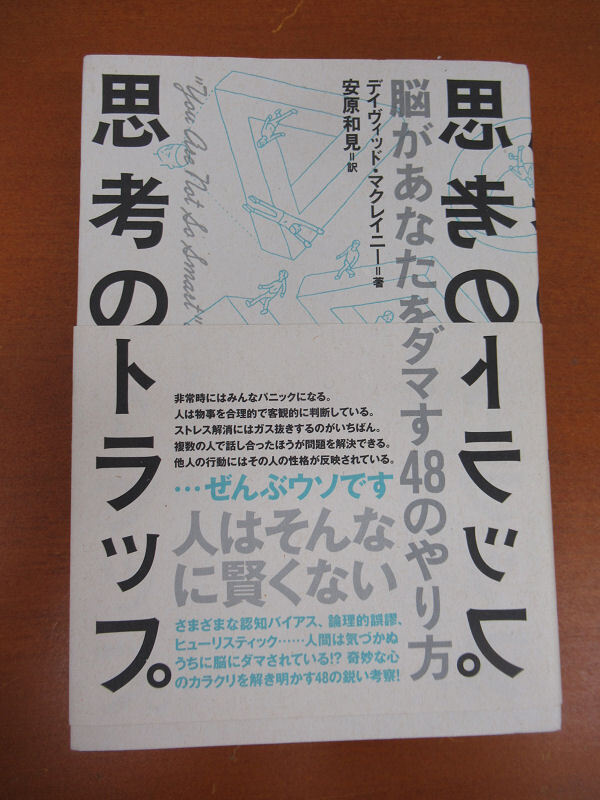 思考のトラップ。
脳があなたをダマす48のやり方
デイヴィッド・マクレイニー=著
安原和見=訳
"You Are Not So Smart"
思考のトラップ。
非常時にはみんなパニックになる。
人は物事を合理的で客観的に判断している。
ストレス解消にはガス抜きするのがいちばん。
複数の人で話し合ったほうが問題を解決できる。
他人の行動にはその人の性格が反映されている。
…ぜんぶウソです
人はそんな
に賢くない
さまざまな認知バイアス、論理的誤謬、
ヒューリスティック……人間は気づかぬ
うちに脳にダマされている!? 奇妙な心
のカラクリを解き明かす48の鋭い考察!